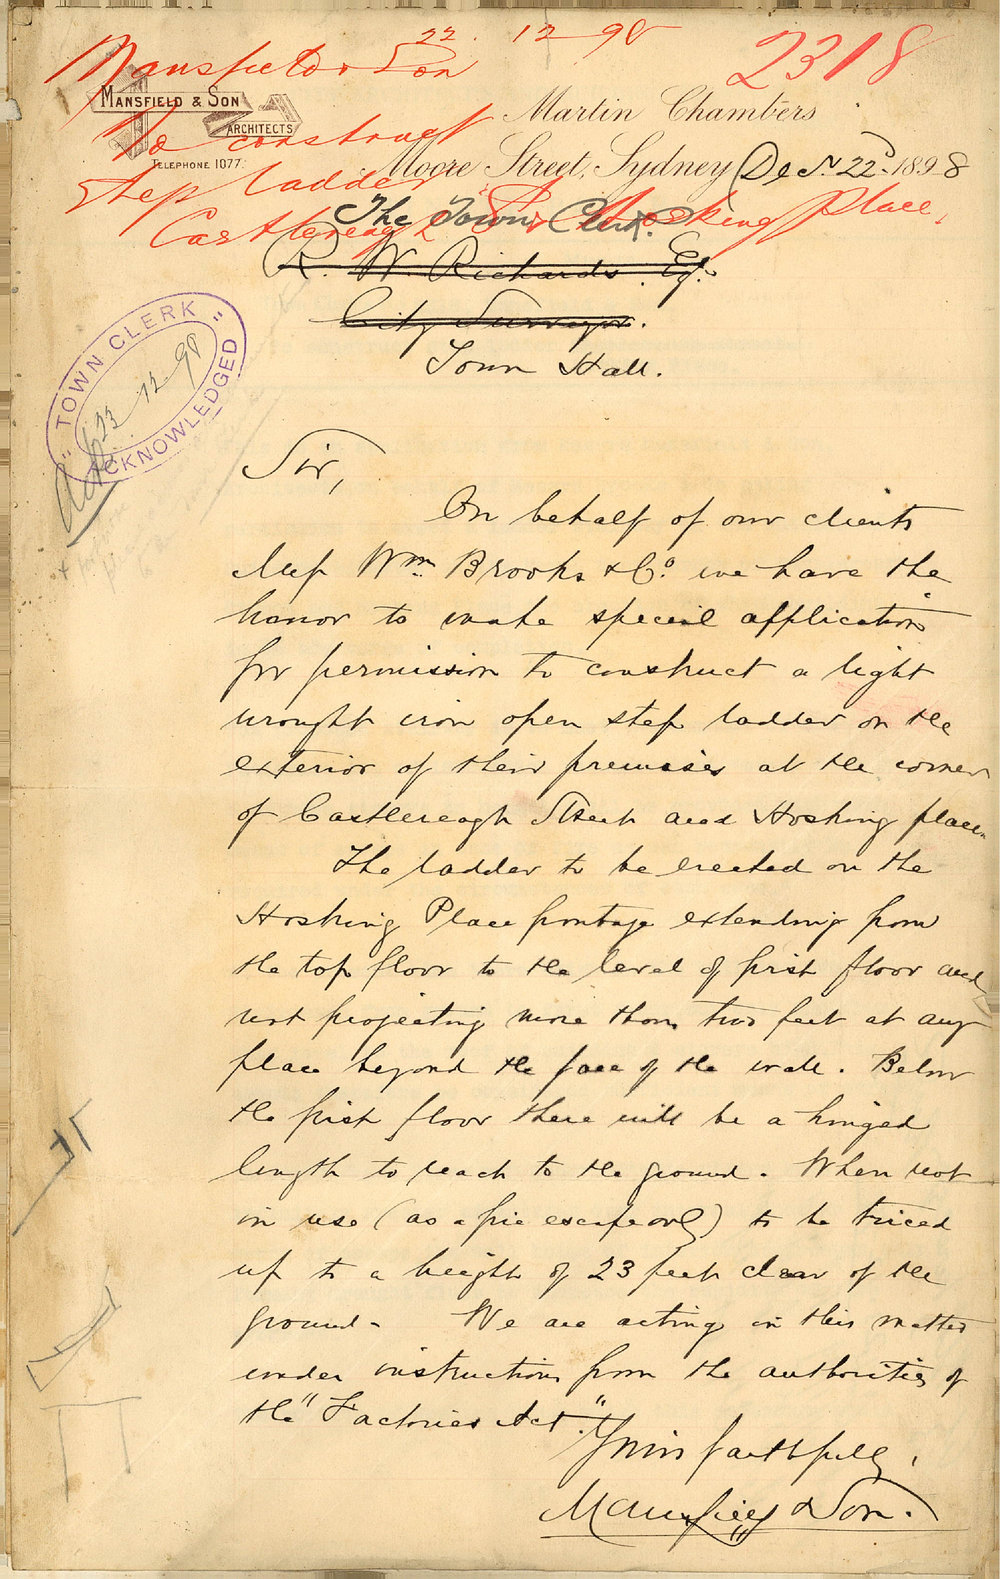 22. 12 98
2318
Mansfield & Son
To construct
step ladder
Castlereagh St & Hosking Place.
MANSFIELD & SON
ARCHITECTS
TELEPHONE 1077.
Martin Chambers
Moore Street, Sydney Dec. 22d 1898
The Town Clerk.
R. W. Richards. Esq.
City Surveyor.
Town Hall.
"TOWN CLERK"
23 12 98
ACKNOWLEDGED
Sir,
On behalf of our clients
Mess Wm. Brooks & Co. we have the
honor to make special application
for permission to construct a light
wrought iron open step ladder on the
exterior of their premises at the corner
of Castlereagh Street and Hosking place.
The ladder to be erected on the
Hosking Place frontage extending from
the top floor to the level of first floor and
not projecting more than two feet at any
place beyond the face of the wall. Below
the first floor there will be a hinged
length to reach to the ground. When not
in use (as a fire escape only) to be triced
up to a height of 23 feet clear of the
ground. We are acting in this matter
under instructions from the authorities of
the "Factories Act."
Yours faithfully,
Mansfield & Son.